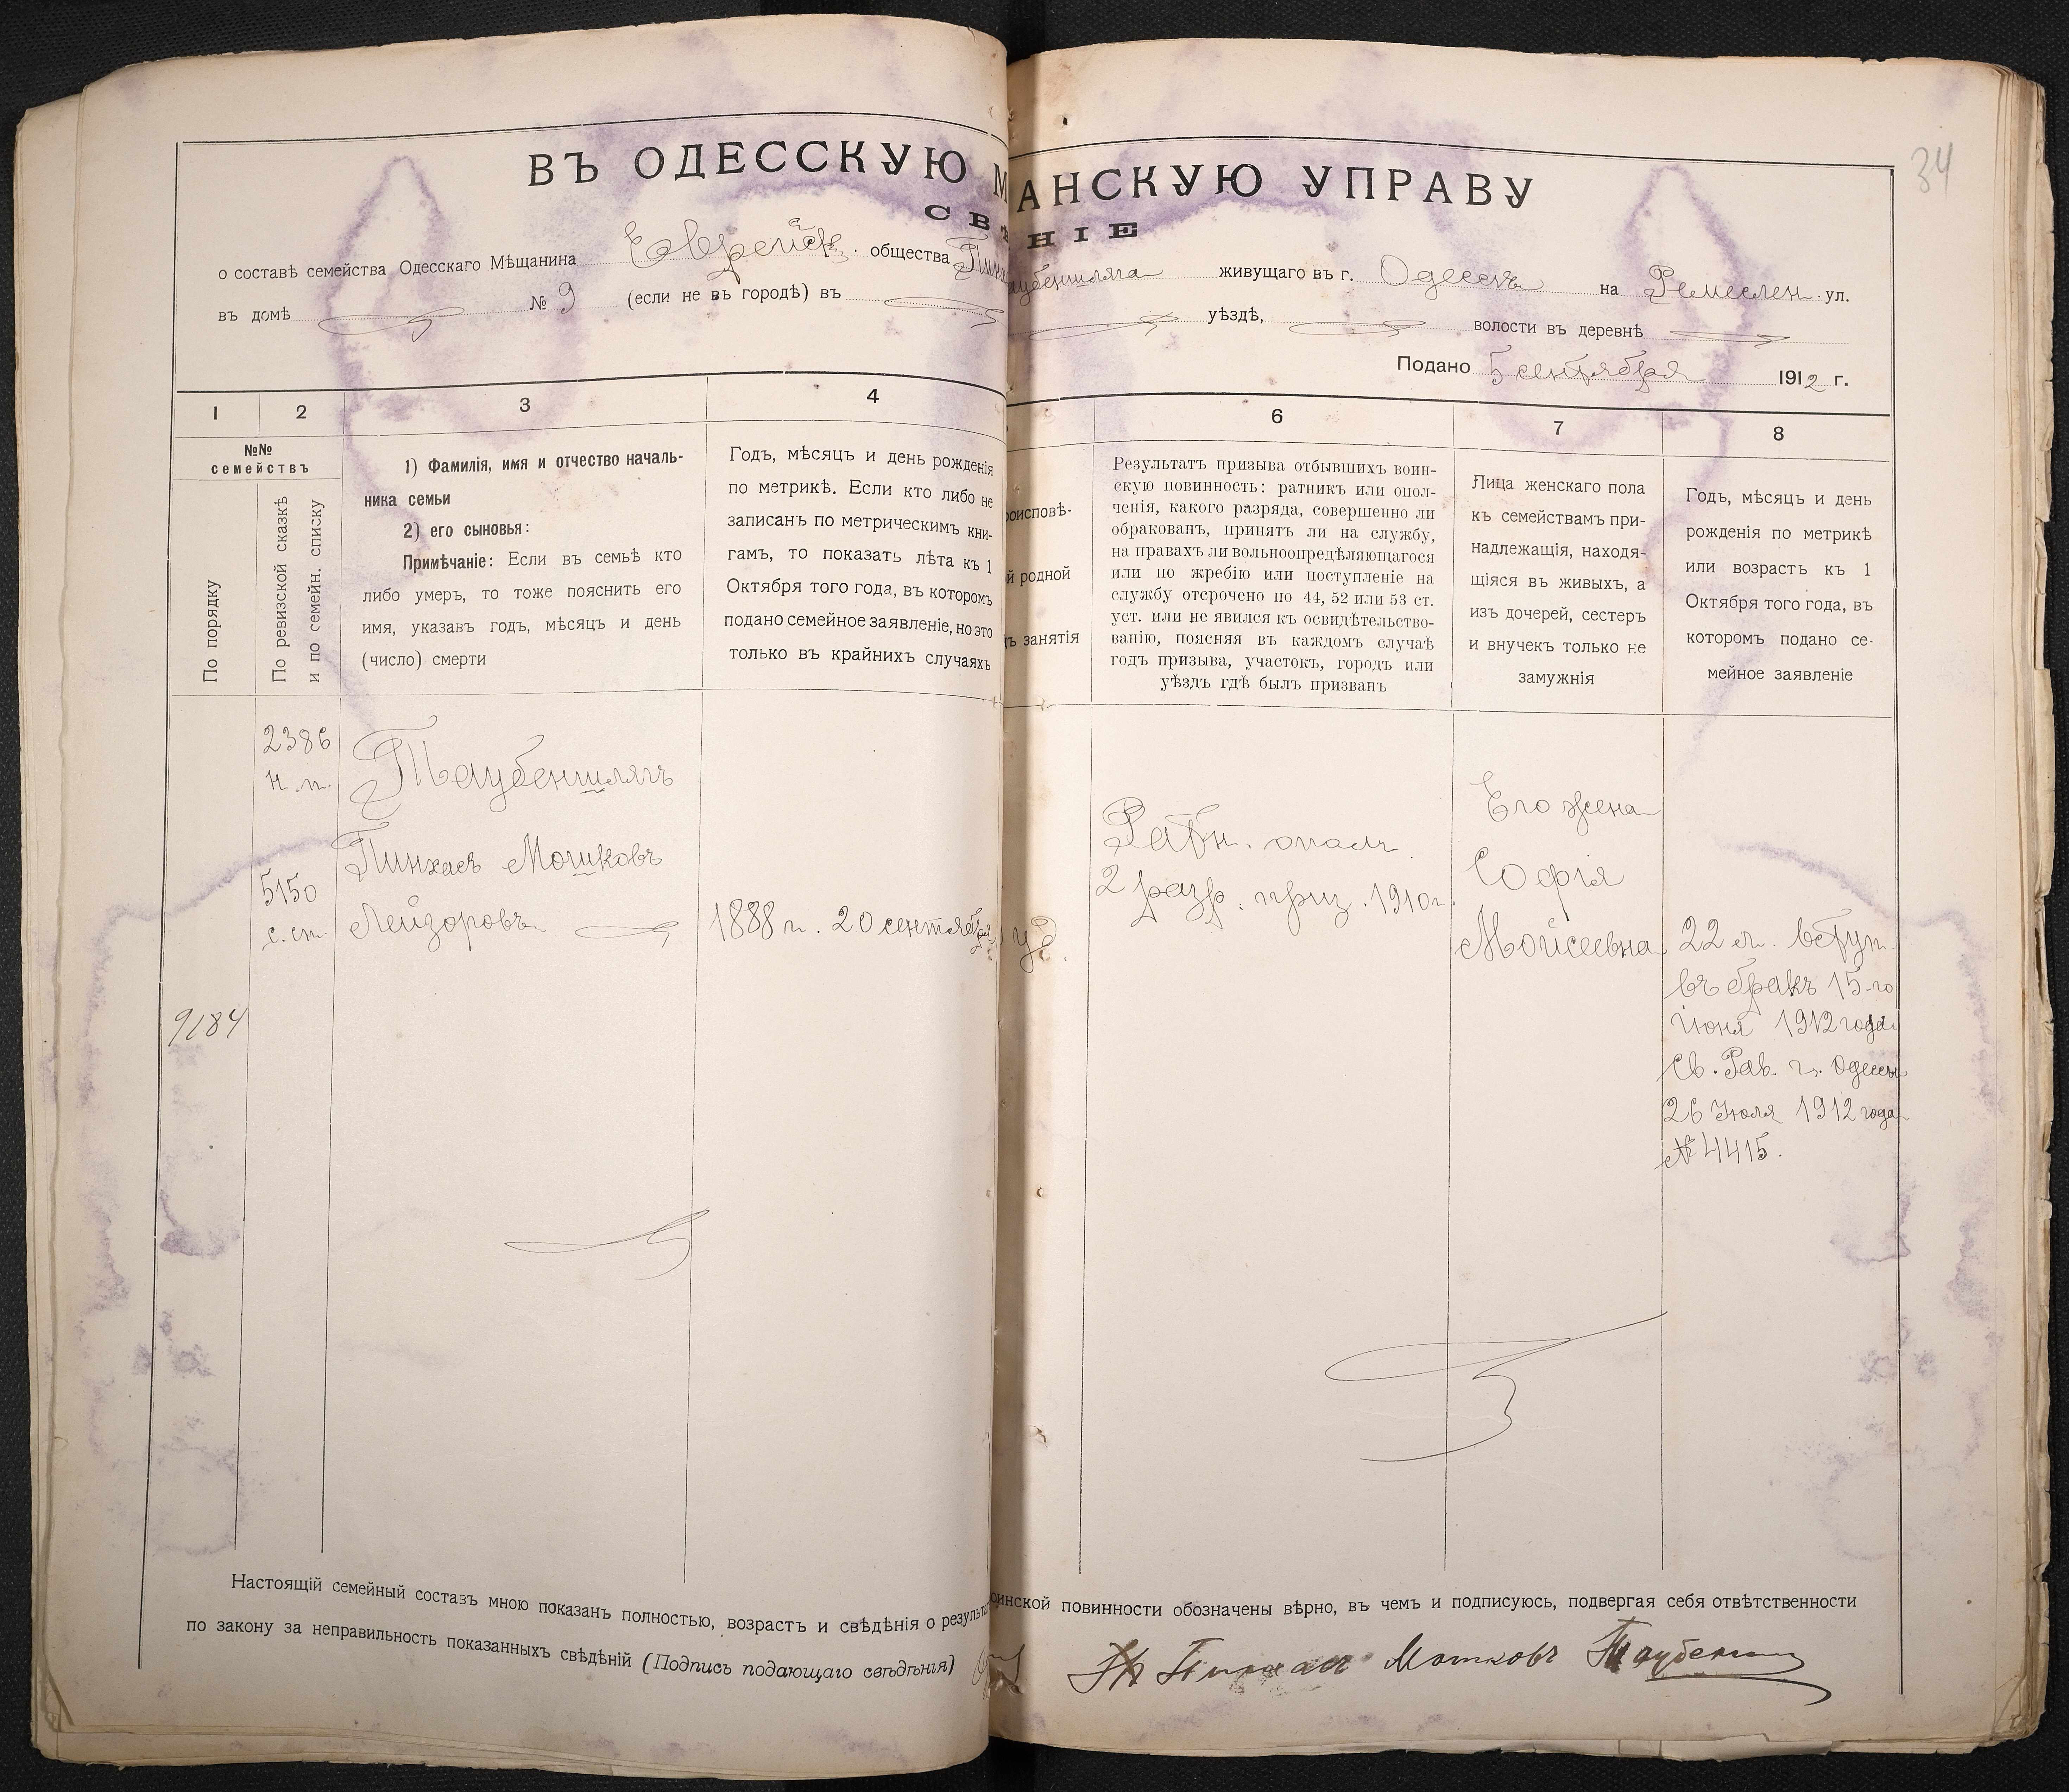 34
ВЪ ОДЕССКУЮ М АНСКУЮ УПРАВУ
СВѢ НІЕ
о составѣ семейства Одесскаго Мѣщанина Еврейск. общества Пинх аубеншляга живущаго въ г. Одессѣ на Ремеслен. ул.
въ домѣ № 9 (если не въ городѣ) въ уѣздѣ, волости въ деревнѣ
Подано 5 сентября 1912 г.
1 2 3 4 6 7 8
№№
семействъ
По порядку
По ревизской сказкѣ
и по семейн. списку
1) Фамилія, имя и отчество началь-
ника семьи
2) его сыновья:
Примѣчаніе: Если въ семьѣ кто
либо умеръ, то тоже пояснить его
имя, указавъ годъ, мѣсяцъ и день
(число) смерти
Годъ, мѣсяцъ и день рожденія
по метрикѣ. Если кто либо не
записанъ по метрическимъ кни-
гамъ, то показать лѣта къ 1
Октября того года, въ которомъ
подано семейное заявленіе, но это
только въ крайнихъ случаяхъ
роисповѣ-
й родной
ъ занятія
Результатъ призыва отбывшихъ воин-
скую повинность: ратникъ или опол-
ченія, какого разряда, совершенно ли
обракованъ, принятъ ли на службу,
на правахъ ли вольноопредѣляющагося
или по жребію или поступленіе на
службу отсрочено по 44, 52 или 53 ст.
уст. или не явился къ освидѣтельство-
ванію, поясняя въ каждомъ случаѣ
годъ призыва, участокъ, городъ или
уѣздъ гдѣ былъ призванъ
Лица женскаго пола
къ семействамъ при-
надлежащія, находя-
щіяся въ живыхъ, а
изъ дочерей, сестеръ
и внучекъ только не
замужнія
Годъ, мѣсяцъ и день
рожденія по метрикѣ
или возрастъ къ 1
Октября того года, въ
которомъ подано се-
мейное заявленіе
9184
2386
н.п.
5150
с.сп.
Таубеншлягъ
Пинхасъ Мошковъ
Лейзоровъ
1888 г. 20 сентября
уд.
Ратн. опол.
2 разр. приз. 1910 г.
Его жена
Софія
Мойсеевна
22 л. вступ.
въ бракъ 15-го
Июня 1912 года
Св. Рав. г. Одессы
26 Июля 1912 года
№ 4415.
Настоящій семейный составъ мною показанъ полностью, возрастъ и свѣдѣнія о результат оинской повинности обозначены вѣрно, въ чемъ и подписуюсь, подвергая себя отвѣтственности
по закону за неправильность показанныхъ свѣдѣній (Подпись подающаго свѣдѣнія) Пинхасъ Мошковъ Таубеншлягъ